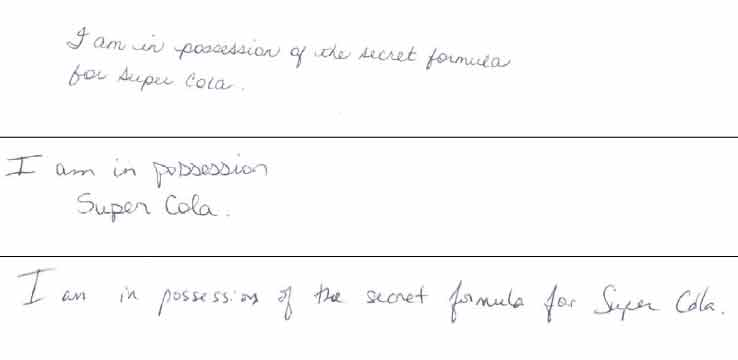 I am in possession of the secret formula
for Super Cola.
I am in possession
Super Cola.
I am in possession of the secret formula for Super Cola.